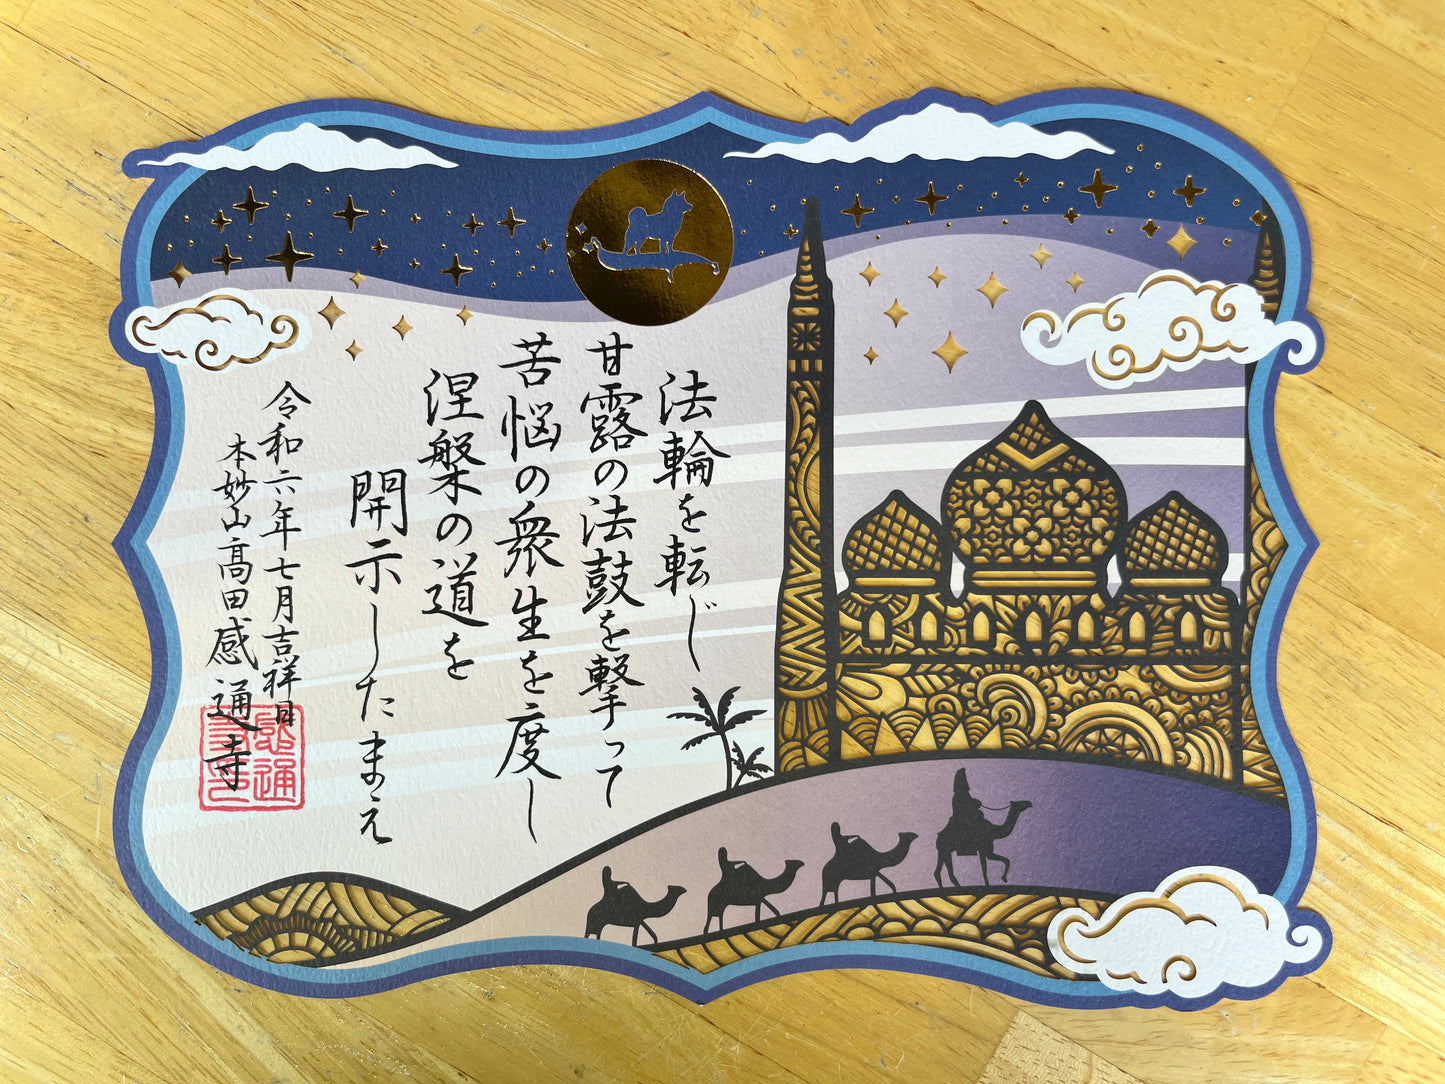 法輪を転じ
甘露の法鼓を撃って
苦悩の衆生を度し
涅槃の道を
開示したまえ
令和六年七月吉祥日
本妙山高田感通寺